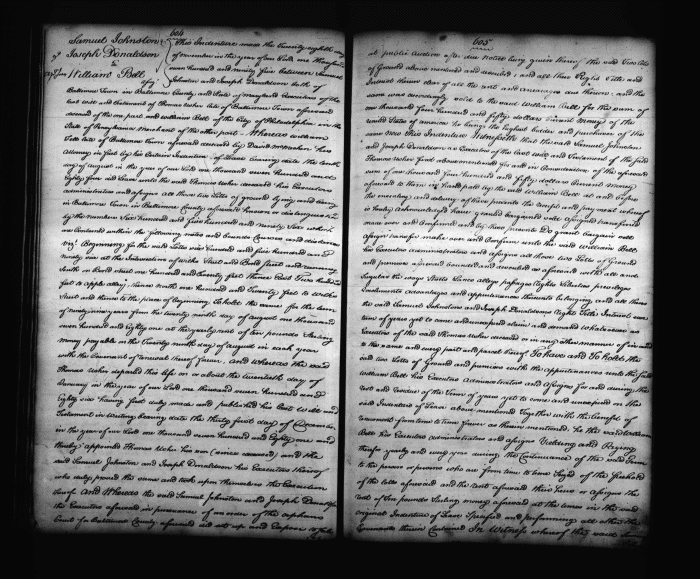 604
Samuel Johnston
& Joseph Donaldson
to
William Bell
This Indenture made the twenty eighth day
of november in the year of our Lord one thousand
seven hundred and ninety five between Samuel
Johnston and Joseph Donaldson both of
Baltimore Town in Baltimore County and State of Maryland Executors of the
last will and testament of Thomas Usher late of Baltimore Town aforesaid
deceased of the one part and William Bell of the City of Philadelphia in the
State of Pennsylvania Merchant of the other part. Whereas William
late of Baltimore Town aforesaid deceased by David McMechen his
Attorney in fact by his certain Indenture of Lease bearing date the tenth
day of august in the year of our Lord one thousand seven hundred and
Eighty four did Lease unto the said Thomas Usher deceased his Executors
administrators and assigns all those two Lotts of ground lying and being
in Baltimore Town in Baltimore County aforesaid known or distinguished
by the numbers Six hundred and five hundred and ninety Six which
are contained within the following metes and bounds Courses and distances
viz. Beginning for the said Lotts
ninety six at the Intersection of Wilks Street and Bond Street and running
South on Bond street one hundred and twenty feet thence East Two hundred
feet to alley thence north one hundred and twenty feet to Wilks
Street and thence to the place of beginning To hold the same for the term
of ninety nine years from the twenty ninth day of august one thousand
seven hundred and eighty one at the yearly rent of ten pounds Sterling
money payable on the Twenty ninth day of august in each year
with the Covenant of renewal thereof forever. And whereas the said
Thomas Usher departed this life on or about the twentieth day of
January in the year of our Lord one thousand seven hundred and
Eighty six having first duly made and published his last Will and
Testament in Writing bearing date the thirty first day of December
in the year of our Lord one thousand seven hundred and Eighty one and
thereby appointed Thomas Usher his son (since deceased) and the
said Samuel Johnston and Joseph Donaldson his Executors thereof
who duly proved the same and took upon themselves the Execution
thereof. And Whereas the said Samuel Johnston and Joseph Donaldson
the Executors aforesaid in pursuance of an order of the orphans
Court of Baltimore County aforesaid did set up and expose to sale
605
at public auction after due notice being given thereof the said Two Lotts
of Ground above mentioned and described and all these Right Title and
Interest thereon clear of all the rent and arrearages due thereon and the
same was accordingly sold to the said William Bell for the sum of
one thousand four hundred and fifty dollars current money of the
united States of america he being the highest bidder and purchaser of the
same Now this Indenture Witnesseth that the said Samuel Johnston
and Joseph Donaldson as Executors of the last will and Testament of the said
Thomas Usher first abovementioned for and in Consideration of the aforesaid
sum of one thousand four hundred and fifty dollars Current money
aforesaid to them in hand paid by the said William Bell at and before
the ensealing and delivery of these presents the receipt and payment whereof
is hereby acknowledged have granted bargained sold assigned transferred
made over and confirmed and by these presents Do grant bargain sell
assign transfer make over and Confirm unto the said William Bell
his Executors Administrators and assigns all those two Lotts of Ground
and premises above bounded and described as aforesaid with all and
Singular the ways Streets Lanes alleys passages Rights liberties privileges
emoluments advantages and appurtenances thereunto belonging, and all those
the said Samuel Johnston and Joseph Donaldsons Rights Title Interest use
term of years yet to come and unexpired claim and demand whatsoever as
Executors of the said Thomas Usher deceased or in any other manner of in and
to the same and every part and parcel thereof. To have and To hold the
said two Lotts of Ground and premises with the appurtenances unto the said
William Bell his Executors Administrators and assigns for and during the
rest and residue of the Term of years yet to come and unexpired in the
said Indenture of Lease above mentioned Together with the benefit of
renewal from time to time forever as therein mentioned he the said William
Bell his Executors administrators and assigns Yielding and Paying
therefor yearly and every year during the Continuance of the said Term
to the person or persons who are from time to time Seized of the freehold
of the lotts aforesaid and the rent aforesaid their heirs or assigns the
rent of ten pounds Sterling money aforesaid at the times in the said
original Indenture of Lease Specified and performing all other the
Covenants therein Contained In Witness whereof the said